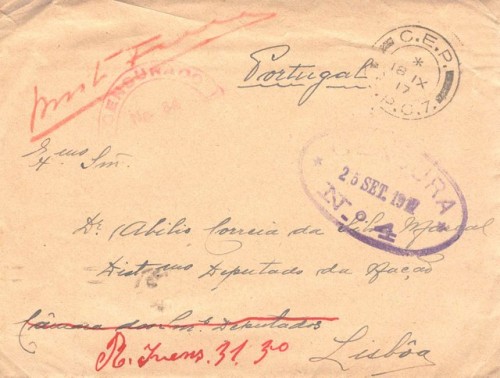 Portugal
C.E.P.
18 IX
17
P.O.7.
CENSURADO
No. 84
Exmo Snr.
CENSURA
25 SET. 1917
N.o 4
Dr. Abilio Correia da Silva Marçal
Distmo Deputado da Nação
Câmara dos Snrs Deputados
R. Ivens. 31. 3o
Lisbôa